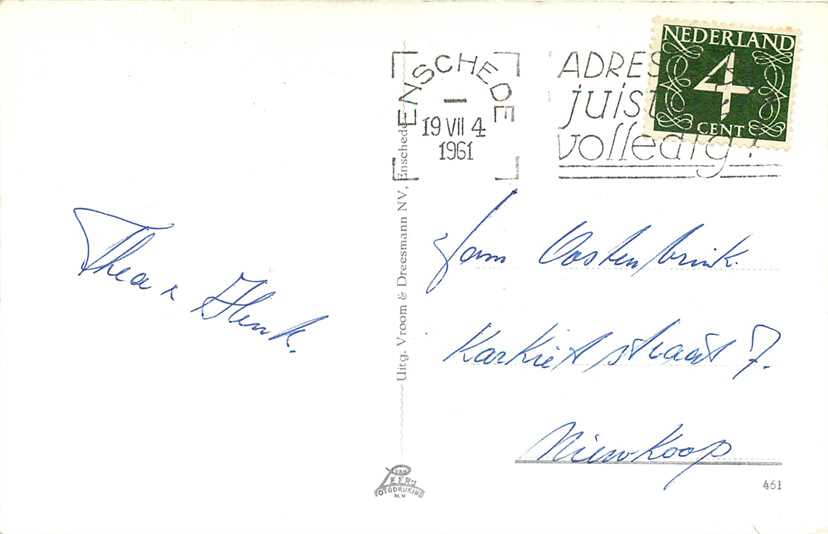 ENSCHEDE
19 VII 4
1961
ADRES
juist
volledig!
NEDERLAND
4
CENT
Thea & Henk.
Uitg. Vroom & Dreesmann NV, Enschede
Fam Oostenbrink.
Karkietstraat 7.
Nieuwkoop
VAN
LEER'S
FOTODRUKIND
N.V.
461